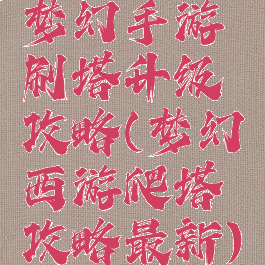 梦幻手游
刷塔升级
攻略(梦幻
西游爬塔
攻略最新)